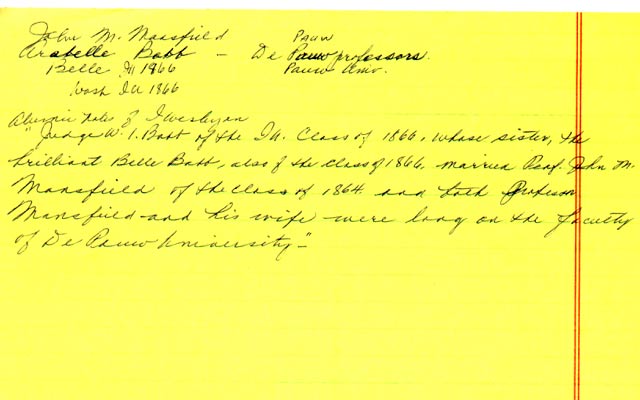 John M. Mansfield Pauw
Arabelle Babb - De Pauw professors.
Belle M 1866 Pauw Univ.
Wash IA 1866
Alumni Notes of I Wesleyan
"Judge W. I. Babb of the Ia. Class of 1866, whose sister, the
brilliant Belle Babb, also of the class of 1866, married Prof. John M.
Mansfield of the class of 1864 and both Professor
Mansfield and his wife were long on the faculty
of De Pauw University"